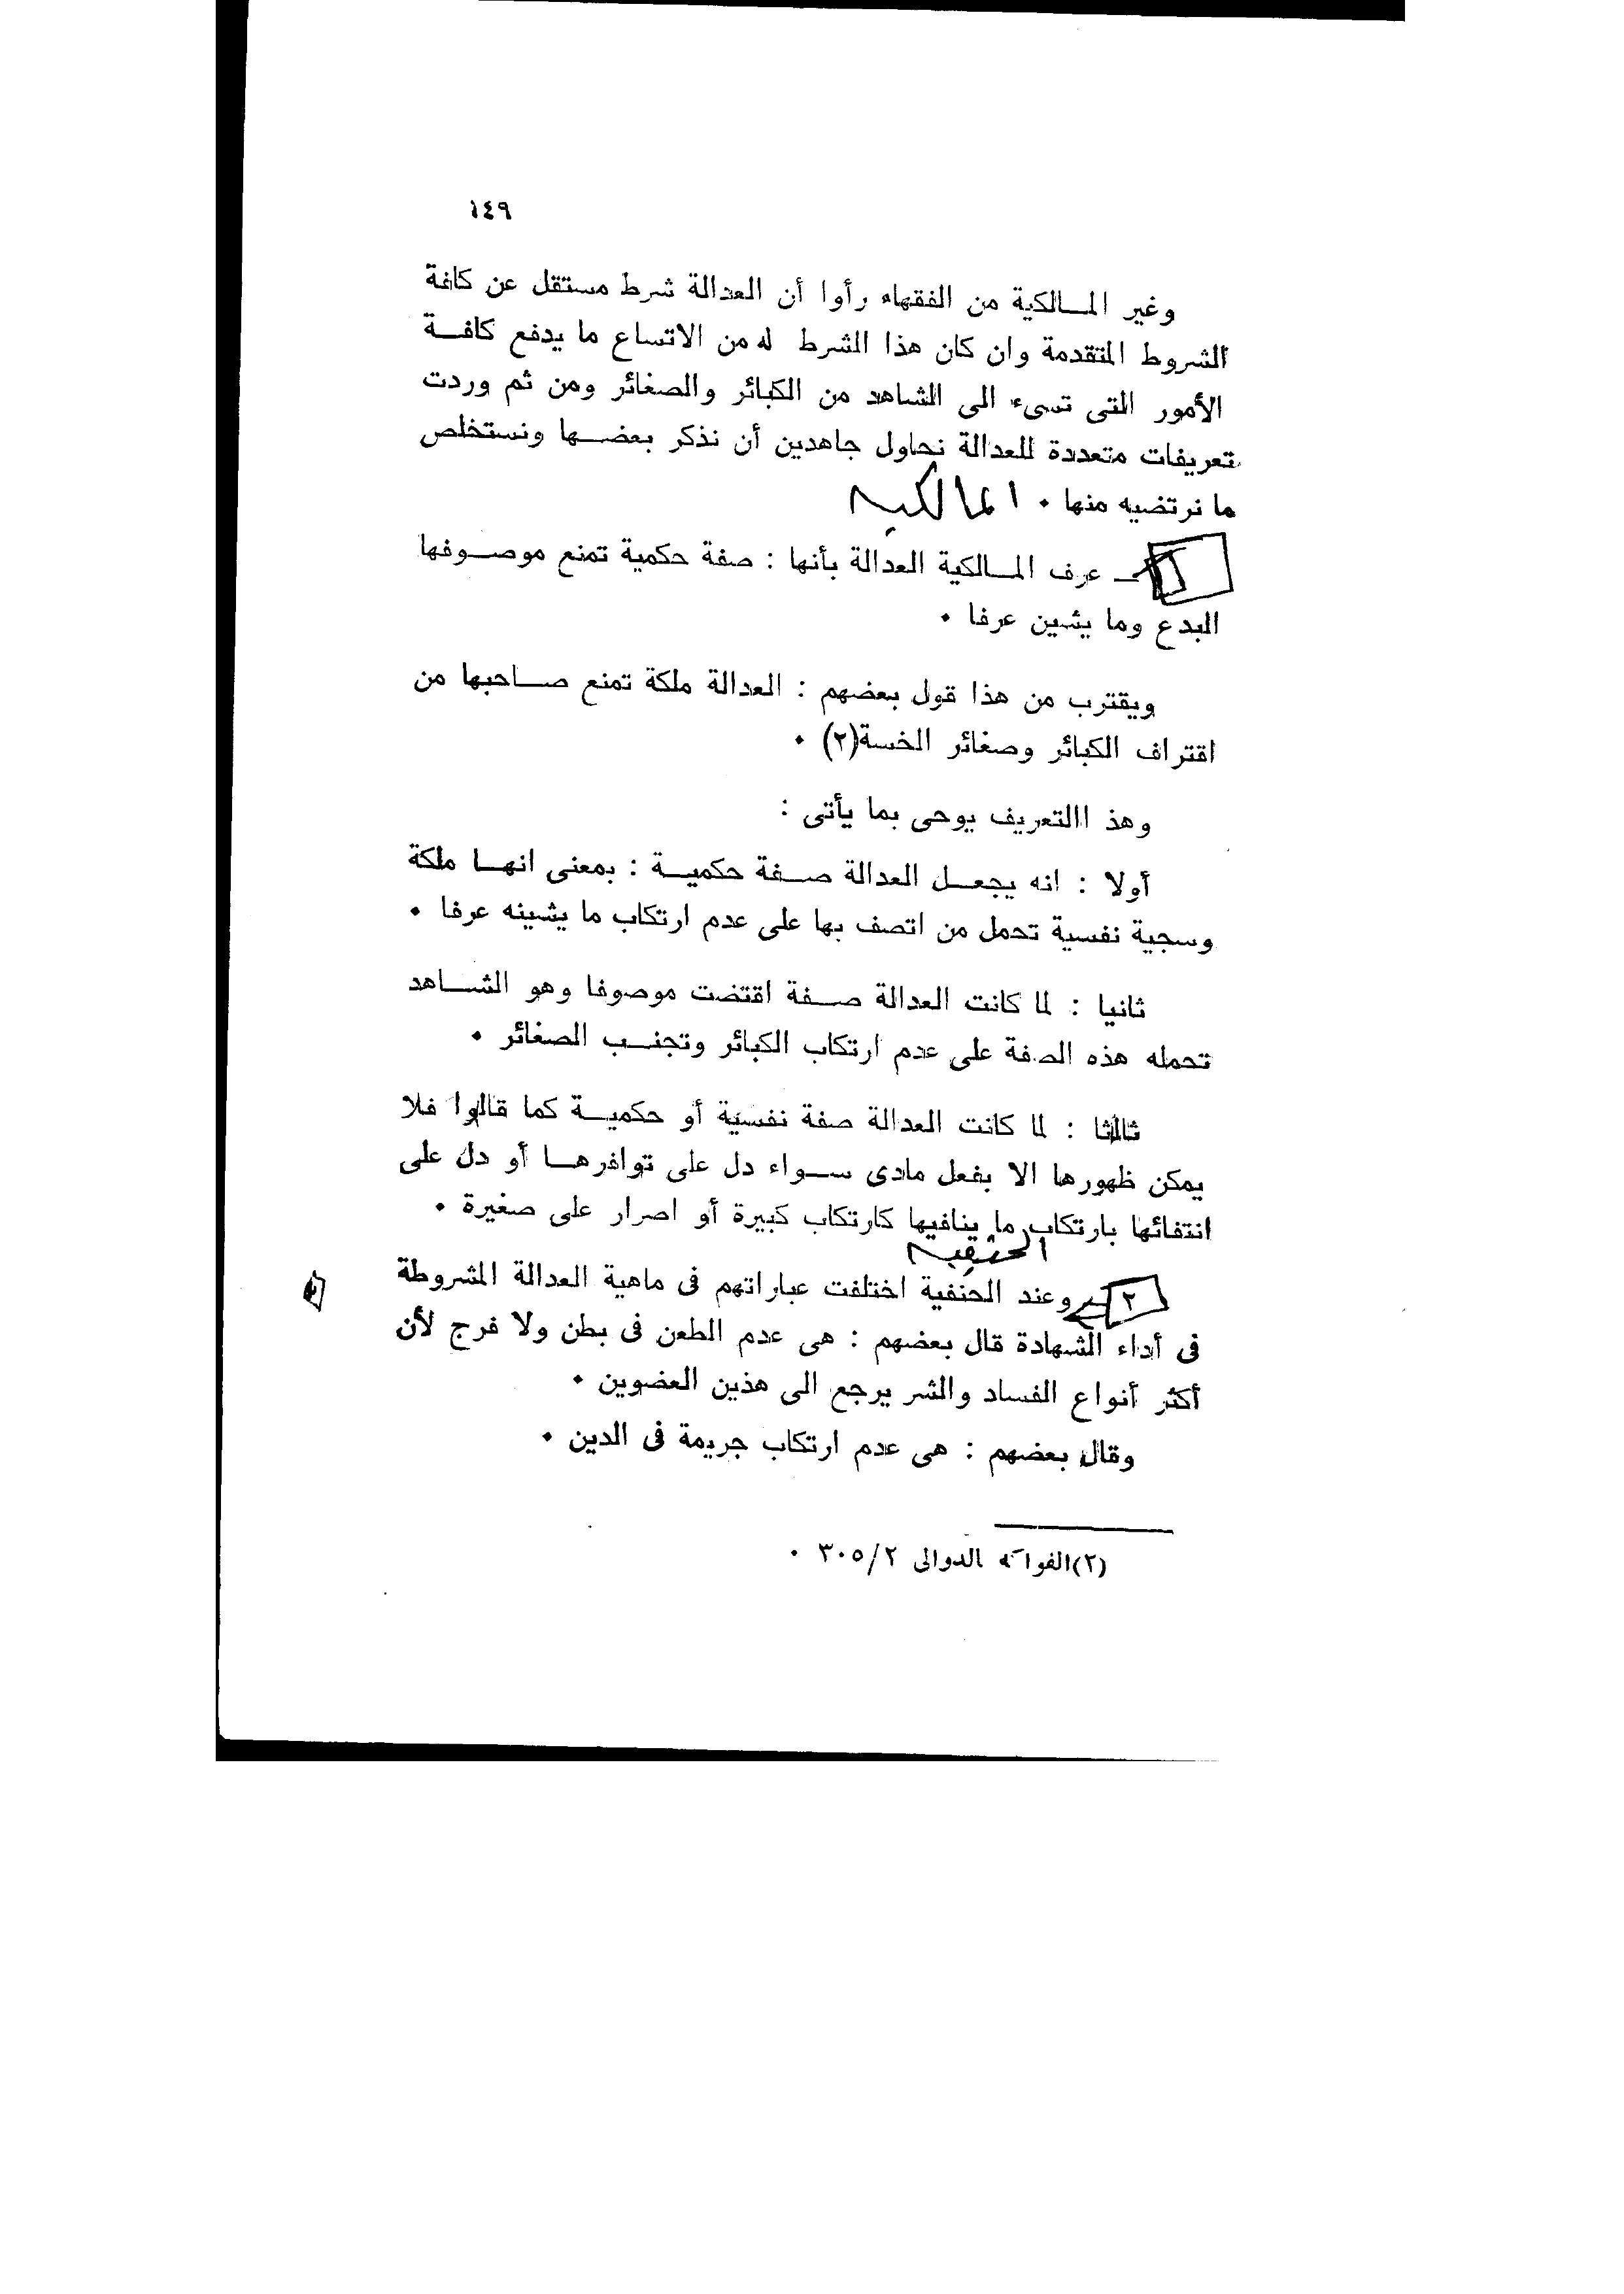 ١٤٩
وغير المالكية من الفقهاء رأوا أن العدالة شرط مستقل عن كافة
الشروط المتقدمة وان كان هذا الشرط له من الاتساع ما يدفع كافة
الأمور التى تسىء الى الشاهد من الكبائر والصغائر ومن ثم وردت
تعريفات متعددة للعدالة نحاول جاهدين أن نذكر بعضها ونستخلص
ما نرتضيه منها . المالكيه
— عرف المالكية العدالة بأنها : صفة حكمية تمنع موصوفها
البدع وما يشين عرفا .
ويقترب من هذا قول بعضهم : العدالة ملكة تمنع صاحبها من
اقتراف الكبائر وصغائر الخسة(٢) .
وهذ االتعريف يوحى بما يأتى :
أولا : انه يجعل العدالة صفة حكمية : بمعنى انها ملكة
وسجية نفسية تحمل من اتصف بها على عدم ارتكاب ما يشينه عرفا .
ثانيا : لما كانت العدالة صفة اقتضت موصوفا وهو الشاهد
تحمله هذه الصفة على عدم ارتكاب الكبائر وتجنب الصغائر .
ثالثا : لما كانت العدالة صفة نفسية أو حكمية كما قالوا فلا
يمكن ظهورها الا بفعل مادى سواء دل على توافرها أو دل على
انتفائها بارتكاب ما ينافيها كارتكاب كبيرة أو اصرار على صغيرة .
الحنفيه
٢ — وعند الحنفية اختلفت عباراتهم فى ماهية العدالة المشروطة
فى أداء الشهادة قال بعضهم : هى عدم الطعن فى بطن ولا فرج لأن
أكثر أنواع الفساد والشر يرجع الى هذين العضوين .
وقال بعضهم : هى عدم ارتكاب جريمة فى الدين .
(٢) الفواكه الدوالى ٣٠٥/٢ .